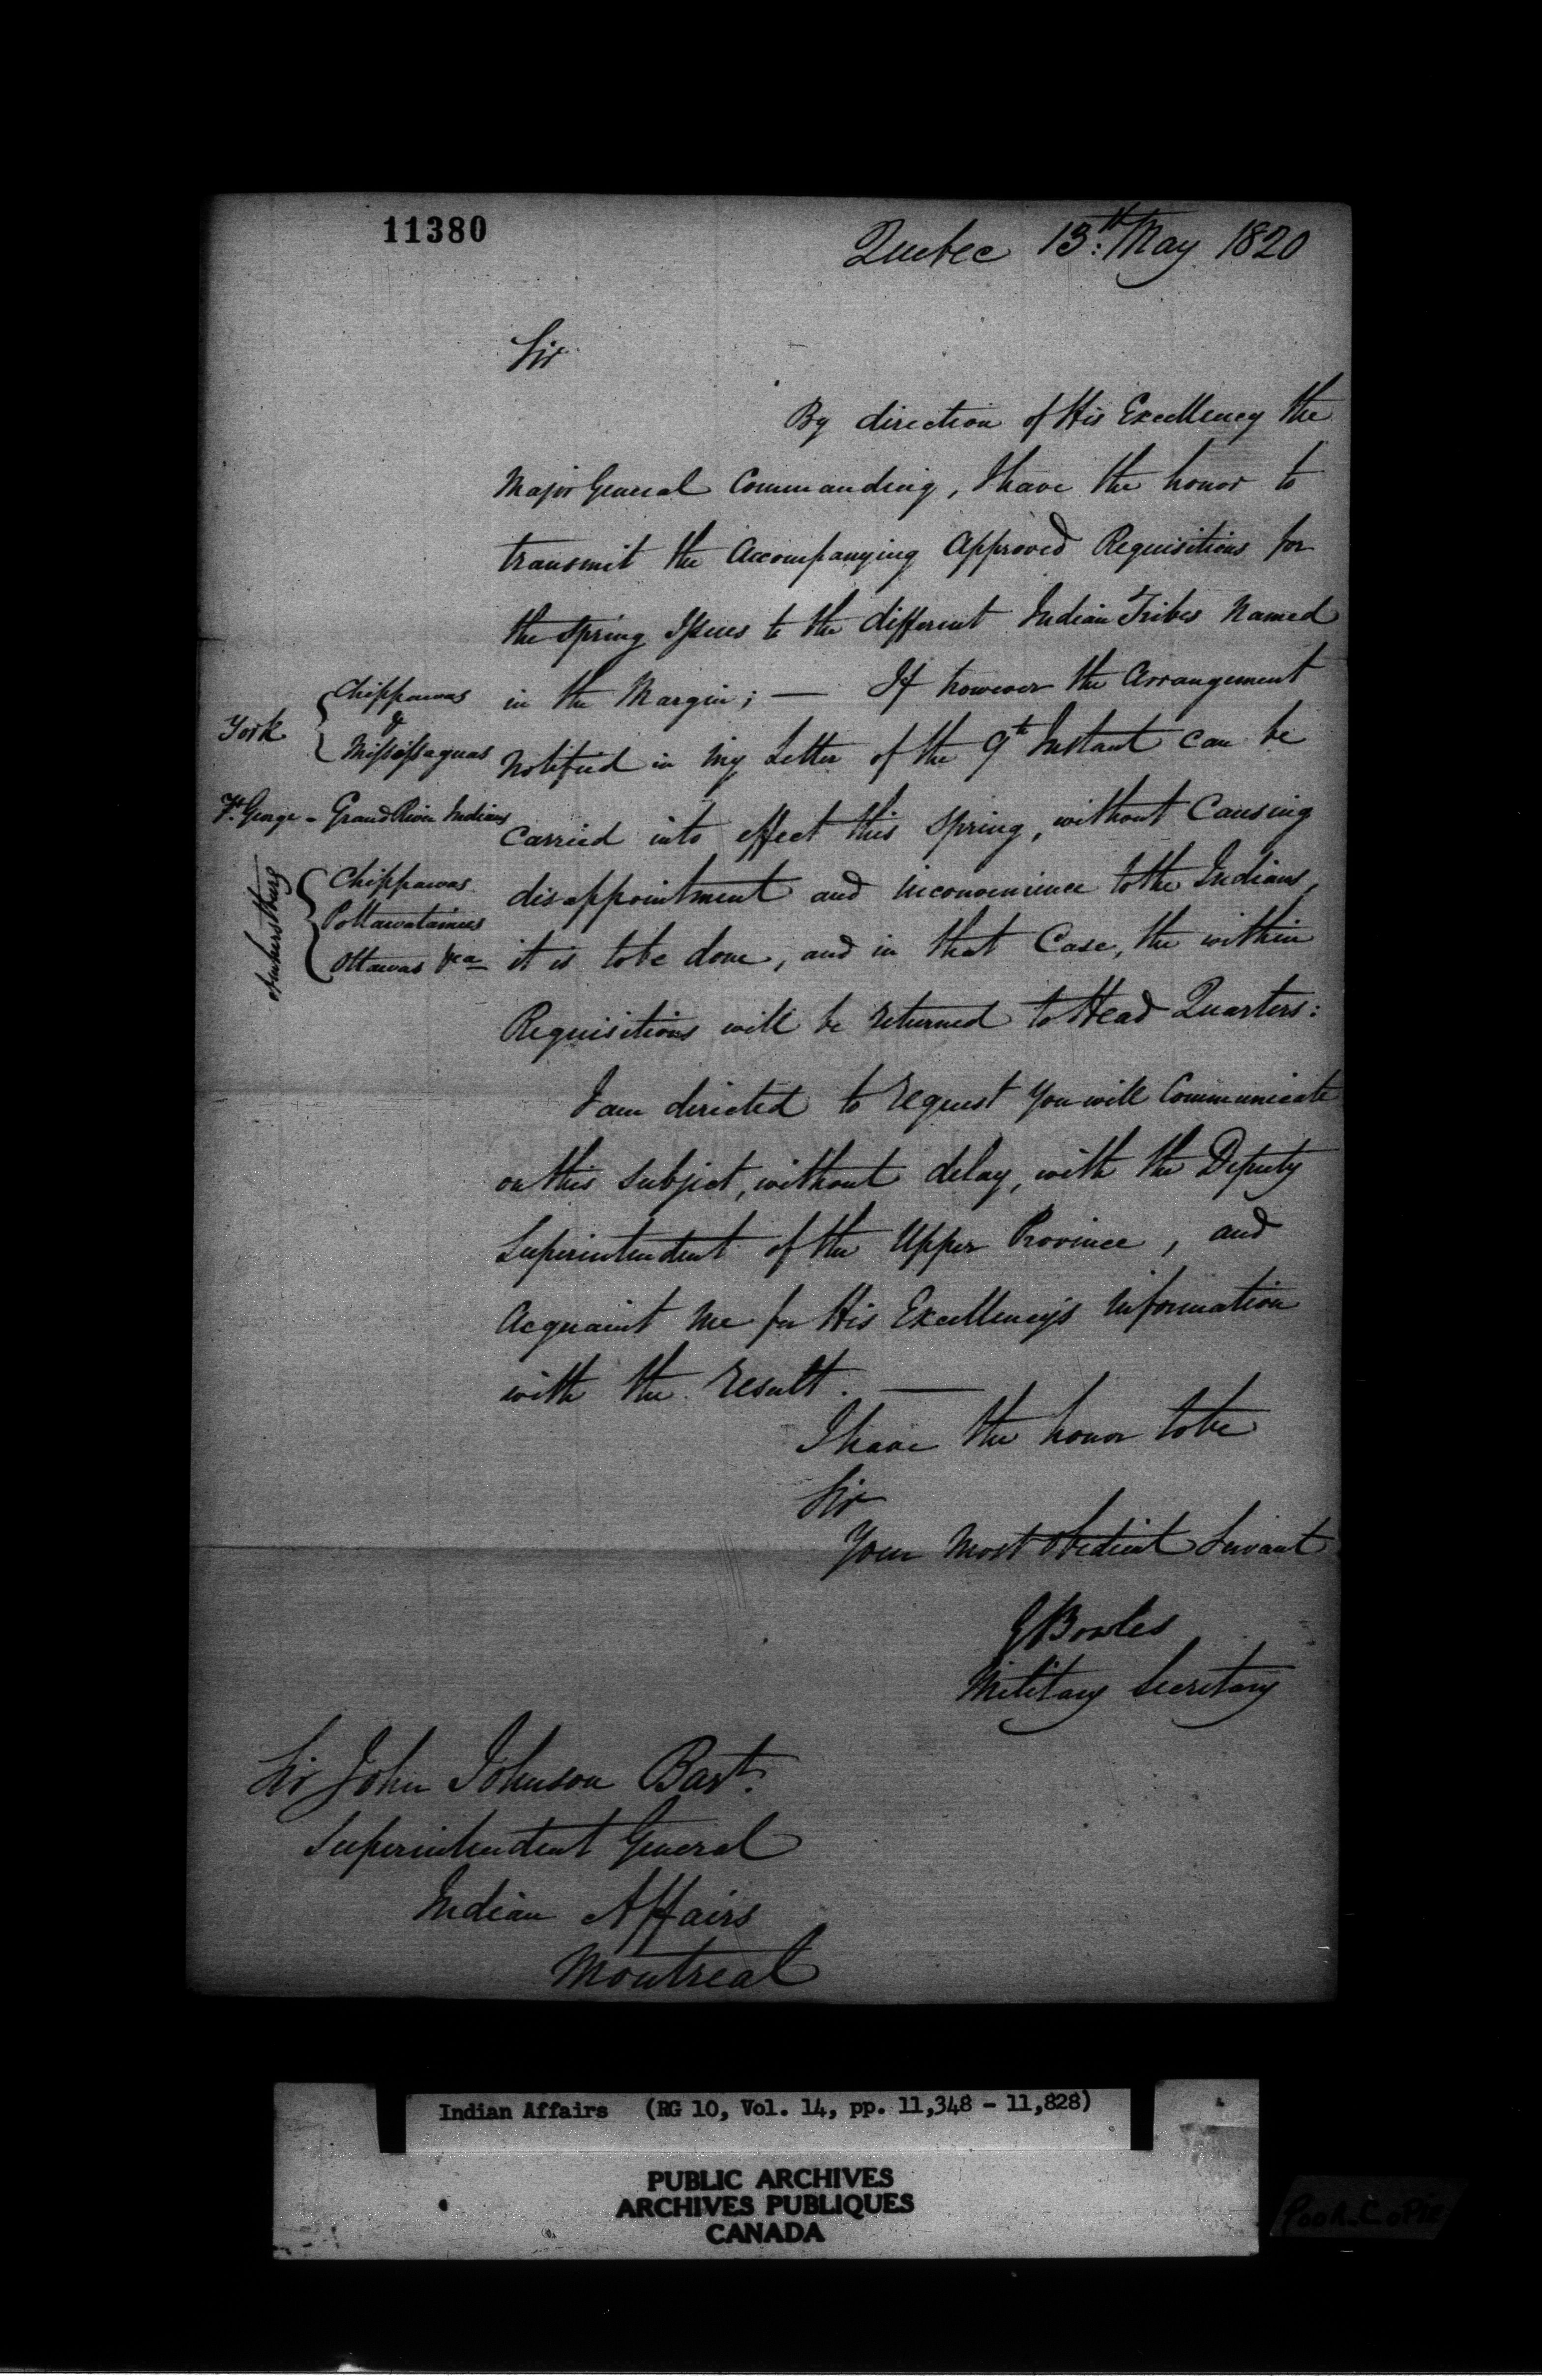 11380
Quebec 13th: May 1820
Sir
By direction of His Excellency the
Major General Commanding, I have the honor to
transmit the Accompanying Approved Requisitions for
the Spring Issues to the different Indian Tribes Named
in the Margin; — If however the Arrangement
Notified in my Letter of the 9th Instant can be
carried into effect this Spring, without Causing
disappointment and inconvenience to the Indians,
it is to be done, and in that Case, the within
Requisitions will be returned to Head Quarters:
York { Chippawas
&
Mississaguas
Ft. George - Grand River Indians
Amherstburg { Chippawas
Pottawatamies
Ottawas &ca
I am directed to request you will Communicate
on this subject, without delay, with the Deputy
Superintendent of the Upper Province, and
Acquaint me for His Excellency's information
with the result. —
I have the honor to be
Sir
Your Most Obedient Servant
G Bowles
Military Secretary
Sir John Johnson Bart.
Superintendent General
Indian Affairs
Montreal
Indian Affairs (RG 10, Vol. 14, pp. 11,348 - 11,828)
PUBLIC ARCHIVES
ARCHIVES PUBLIQUES
CANADA
Poor Copie